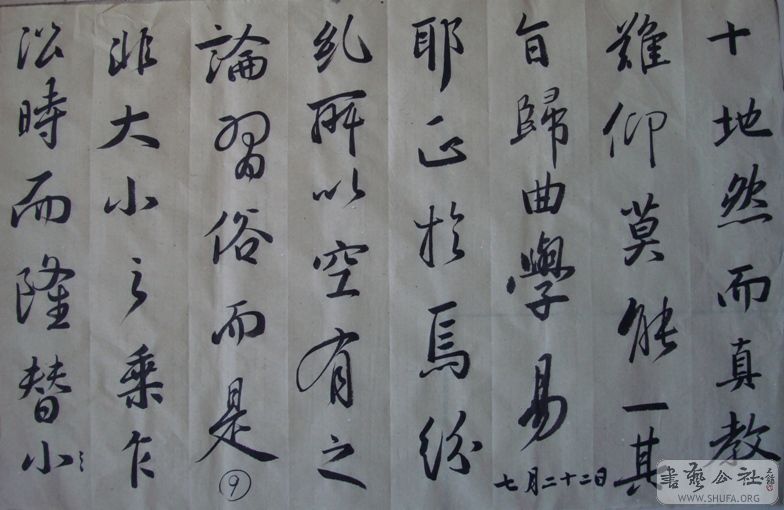 十地然而真教
難仰莫能一其
旨歸曲學易
耶正於焉紛
糺所以空有之
論習俗而是
非大小之乘乍
沿時而隆替小
七月二十二日
⑨
書藝公社
WWW.SHUFA.ORG